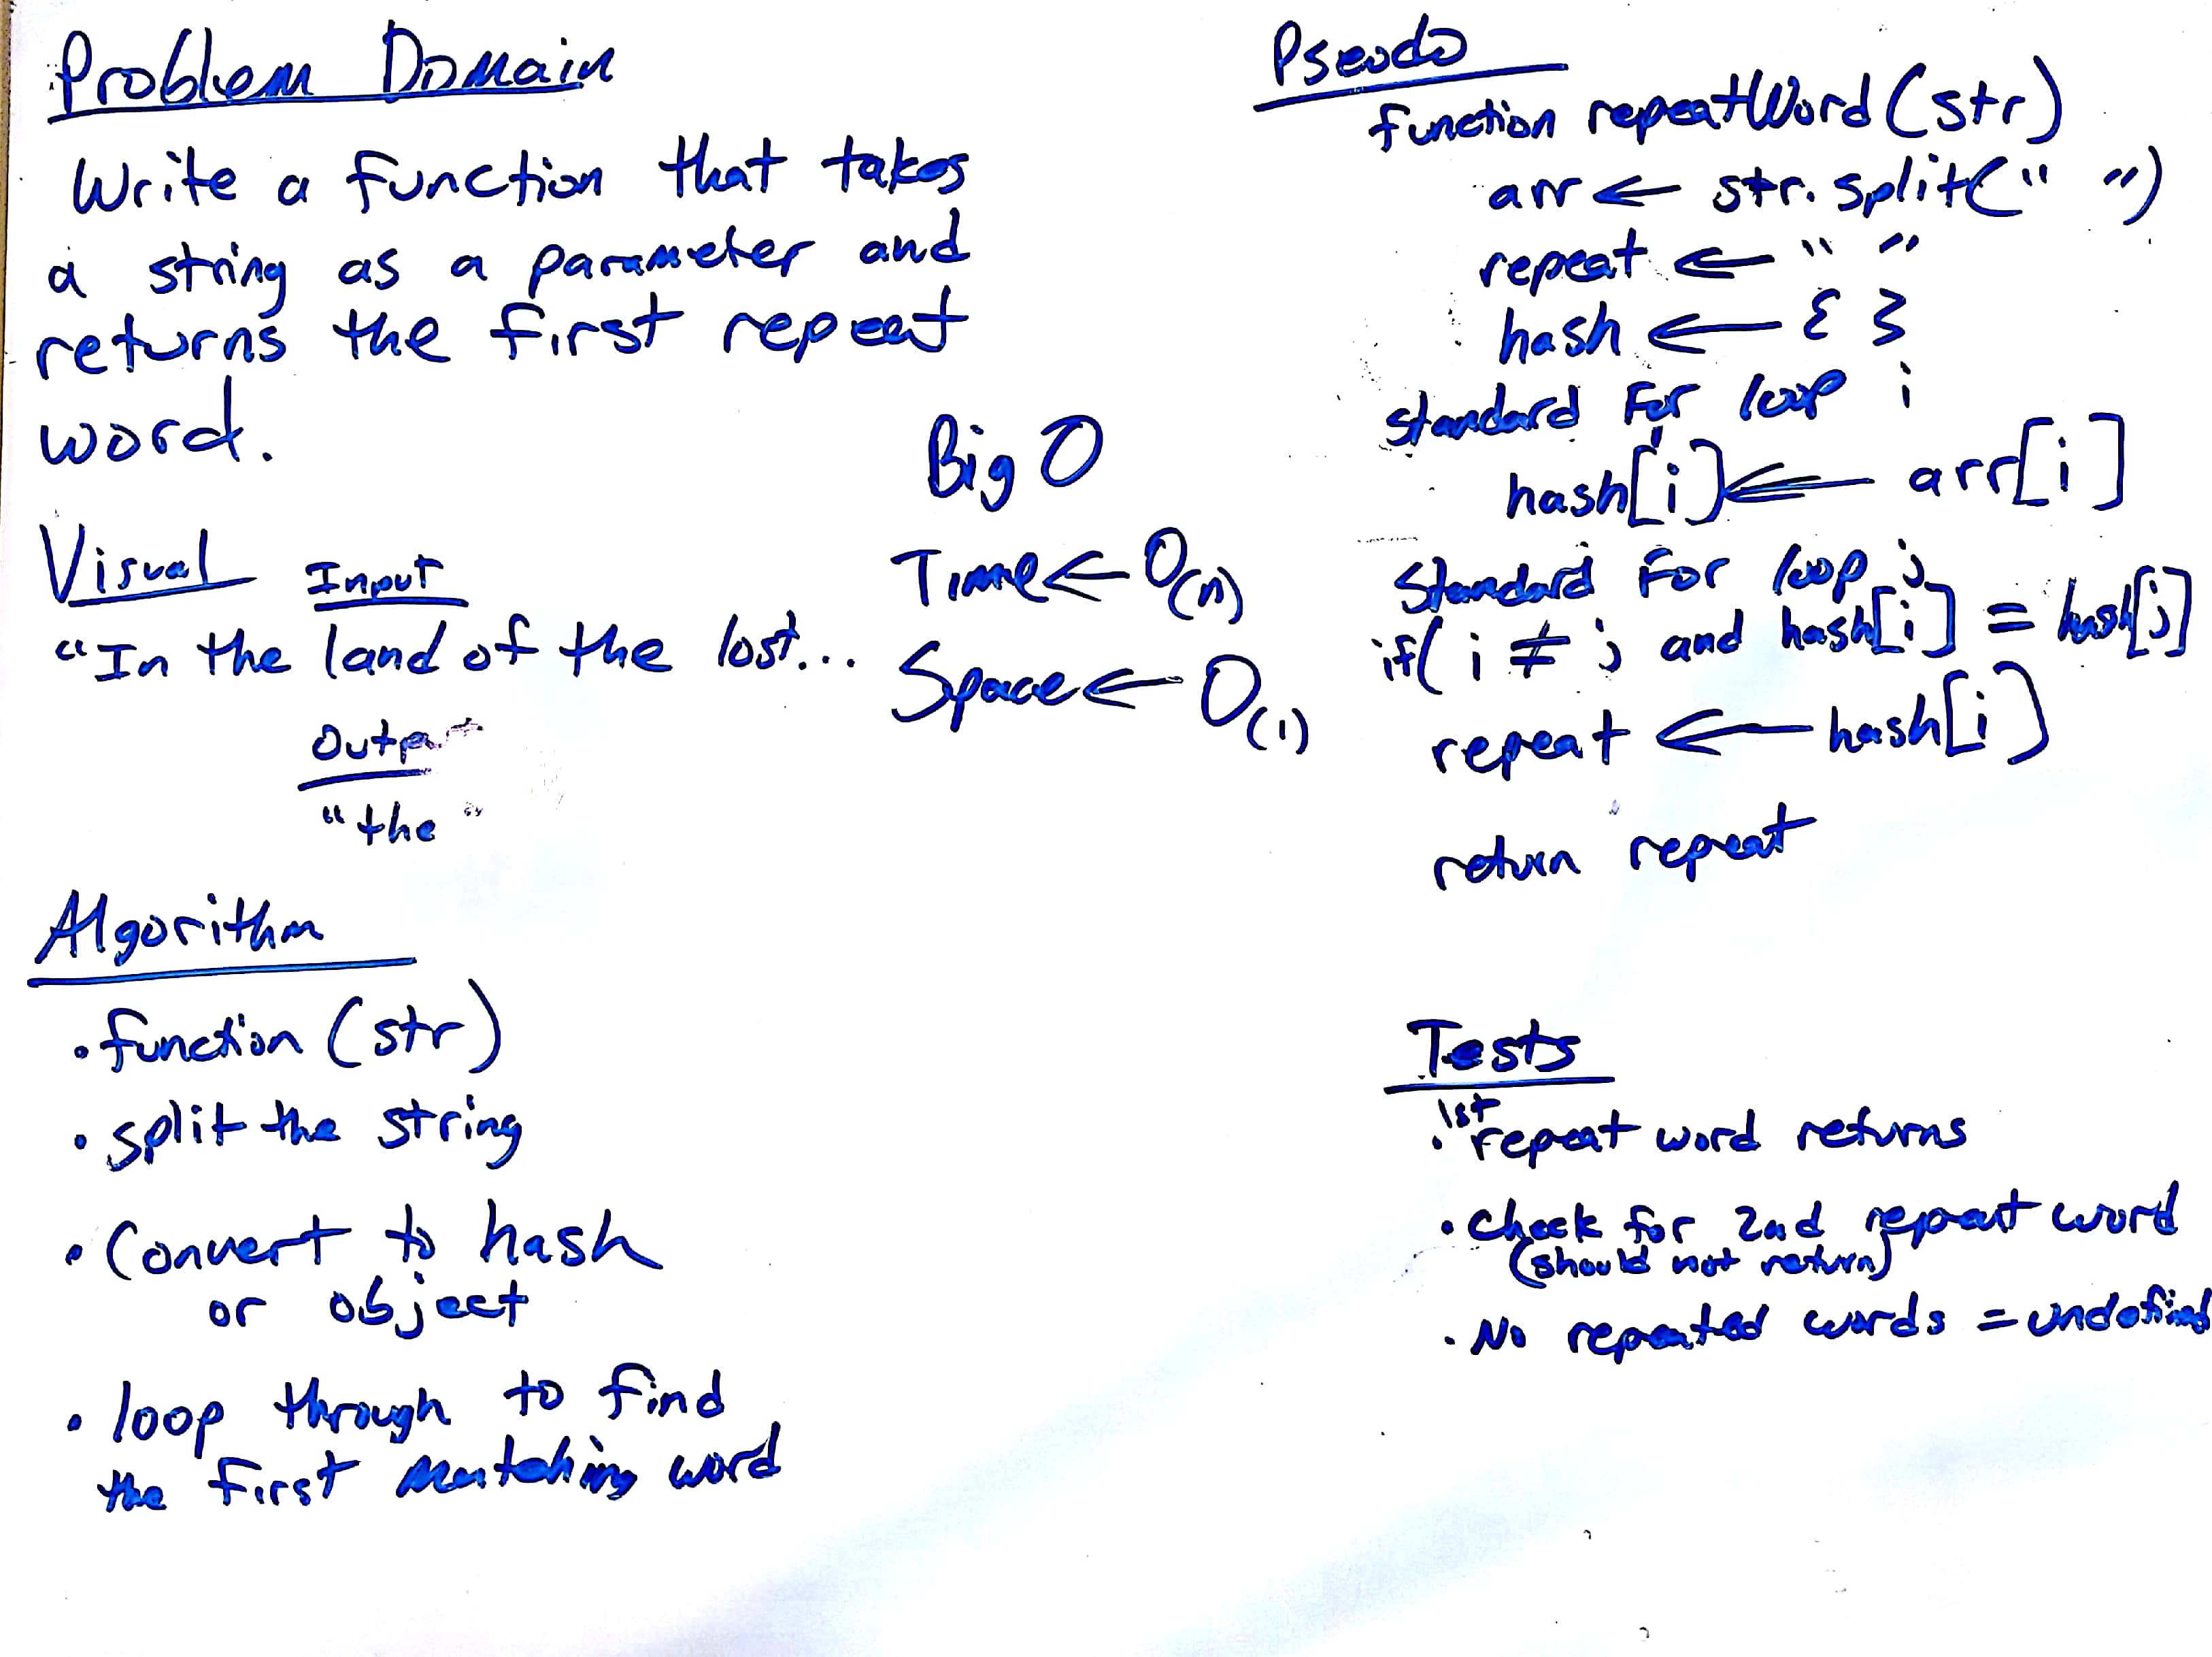 Problem Domain
Write a function that takes
a string as a parameter and
returns the first repeat
word.
Visual
Input
"In the land of the lost...
Output
"the"
Big O
Time ← O(n)
Space ← O(1)
Algorithm
• function (str)
• split the string
• Convert to hash
or object
• loop through to find
the first matching word
Pseudo
function repeatWord(str)
arr ← str.split(" ")
repeat ← " "
hash ← { }
standard For loop i
hash[i] ← arr[i]
Standard For loop j
if( i ≠ j and hash[i] = hash[j]
repeat ← hash[i]
return repeat
Tests
• 1st repeat word returns
• check for 2nd repeat word
(should not return)
• No repeated words = undefined